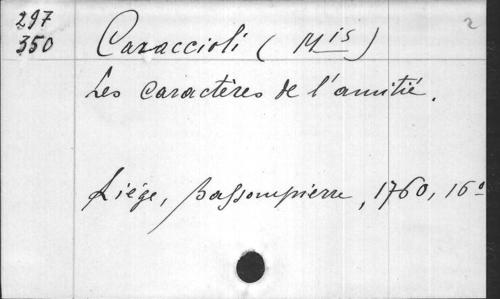 297
350
Caraccioli (Mis)
Les caractères de l'amitié.
Liége, Bassompierre, 1760, 16º
2